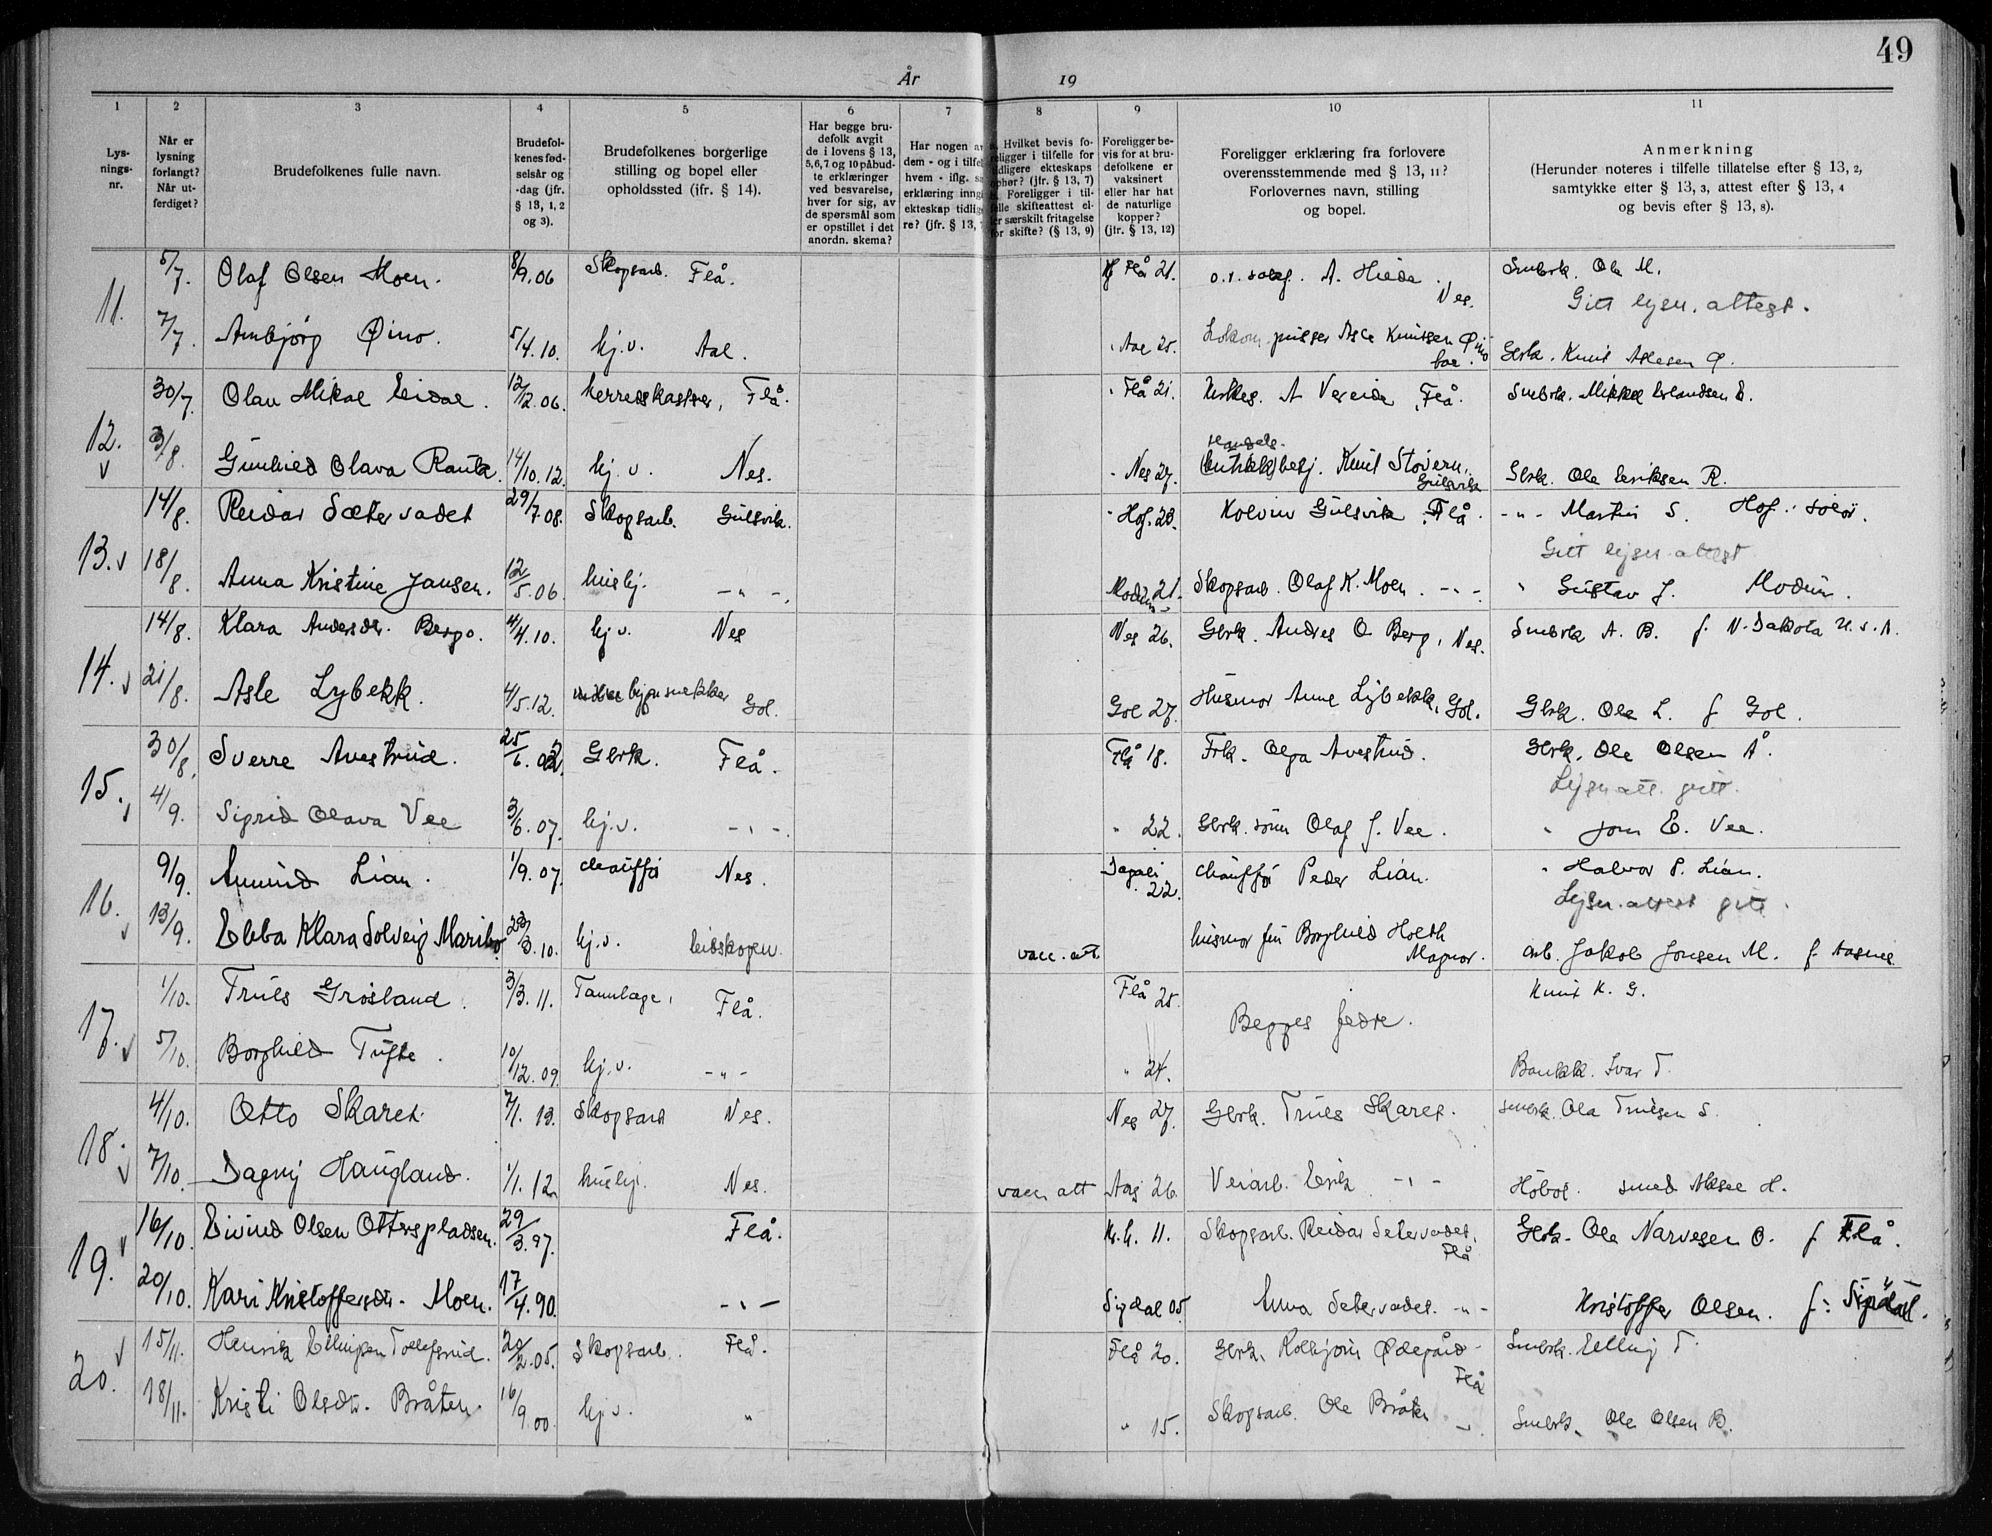 49
År 19
1 2 3 4 5 6 7 8 9 10 11
Lys-
nings-
nr.
Når er
lysning
forlangt?
Når ut-
ferdiget?
Brudefolkenes fulle navn.
Brudefol-
kenes fød-
selsår og
-dag (jfr.
§ 13, 1, 2
og 3).
Brudefolkenes borgerlige
stilling og bopel eller
opholdssted (jfr. § 14).
Har begge bru-
defolk avgit
de i lovens § 13,
5,6,7 og 10 påbud-
te erklæringer
ved besvarelse,
hver for sig, av
de spørsmål som
er opstillet i det
anordn. skema?
Har nogen av
dem - og i tilfel
hvem - iflg.
erklæring inngå
ekteskap tidlig
re? (jfr. § 13,
Hvilket bevis fo-
religger i tilfelle for
tidligere ekteskaps
ophør? (jfr. § 13, 7)
Foreligger i til-
felle skifteattest el-
ler særskilt fritagelse
for skifte? (§ 13, 9)
Foreligger be-
vis for at bru-
defolkene er
vaksinert
eller har hat
de naturlige
kopper?
(jfr. § 13, 12)
Foreligger erklæring fra forlovere
overensstemmende med § 13, 11?
Forlovernes navn, stilling
og bopel.
Anmerkning
(Herunder noteres i tilfelle tillatelse efter § 13, 2,
samtykke efter § 13, 3, attest efter § 13, 4
og bevis efter § 13, 8).
11. 5/7. Olaf Olsen Moen. 8/9.06 Skogsarb. Flå. Flå 21. A. Hilde Ves. Smbrk. Ole M.
Gitt lysn. attest.
7/7. Ambjörg Øino. 5/4.10. hj.v. Aal. Aal 25. Lokom. pusser Asle Knutsen Øino Gbrk. Knut Aslesen Ø.
12. v 30/7. Olav Mikal Eidal. 12/12.06. herredskasser, Flå. Flå 21. Kirkes. A Vereide, Flå. Smbrk. Mikkel Erlandsen E.
3/8. Gunhild Olava Rauk. 14/10.12. hj.v. Nes. Nes 27. Handels-
bestj. Knut Stövern, Gulsvik Gbrk. Ole Eriksen R.
13. v 14/8. Reidar Sætervadet 29/7.08. Skogsarb. Gulsvik. Hof. 23. Kolvin Gulsvik, Flå. -"- Martin S. Hof i Solör.
Gitt lysn. attest
18/8. Anna Kristine Jansen. 12/5.06. hushj. -"-. Modum 21. Skogsarb. Olaf K. Moen. -"-. " Gustav J. Modum.
14. v 14/8. Klara Andersdr. Berg. 4/4.10. hj.v. Nes Nes 26. Gbrk. Andres O. Berg, Nes. Smbrk A. B. f. N. Dakota U.S.A.
21/8. Asle Lybekk. 4/5.12. bygn.snekker Gol. Gol 27. Husmor Anne Lybekk, Gol. Gbrk. Ole L. f Gol.
15. v 30/8. Sverre Avestrud. 25/6.02. Gbrk. Flå. Flå 18. Frk. Olga Avestrud. Gbrk. Ole Olsen Å.
Lysn att. gitt.
4/9. Sigrid Olava Vee 3/6.07. hj.v. -"-. " 22. Gbrk. sönn Olaf J. Vee. " Jon E. Vee.
16. v 9/9. Amund Lian. 1/9.07. chauffør Nes. Dagali 22. Chauffør Peder Lian. " Halvor P. Lian.
Lysn. attest gitt.
13/9. Ebba Klara Solveig Maribo. 23/3.10. hj.v. Eidskogen. vacc. att. husmor fru Borghild Holth Magnor. Arb. Jakob Jonsen M. f. Aasnes
17. v 1/10. Truls Grøsland. 3/3.11. Tannlæge, Flå. Flå 25. Knut K. G.
Begges fedre.
5/10. Borghild Tufte. 10/12.09. hj.v. -"- " 24. Bankk. Ivar T.
18. v 4/10. Otto Skaret 7/1.13. Skogsarb Nes. Nes 27. Gbrk. Truls Skaret. Smbrk. Ola Trulsen S.
7/10. Dagny Haugland. 1/1.12. hushj. Nes. vacc. att Aas 26. Veiarb. Erik -"- Höbol. smed Aksel H.
19. v 16/10. Eivind Olsen Ottersplassen. 29/3.97. Flå. 11. Skogsarb. Reidar Setervadet, Flå Gbrk. Ole Narvesen O. f Flå.
20/10. Kari Kristoffersdr. Moen. 17/4.90. -"- Sigdal 05. Anna Setervadet. -"- Kristoffer Olsen. f: Sigdal.
20. v 15/11. Henrik Ellingsen Tollefsrud. 20/2.05. Skogsarb. Flå. Flå 20. Gbrk. Kolbjörn Ødegård Flå Smbrk. Elling T.
18/11. Kristi Olsdtr. Bråten. 16/9.00. hj.v. " " 15. Skogsarb. Ole Bråten -"-. Smbrk. Ole Olsen B.